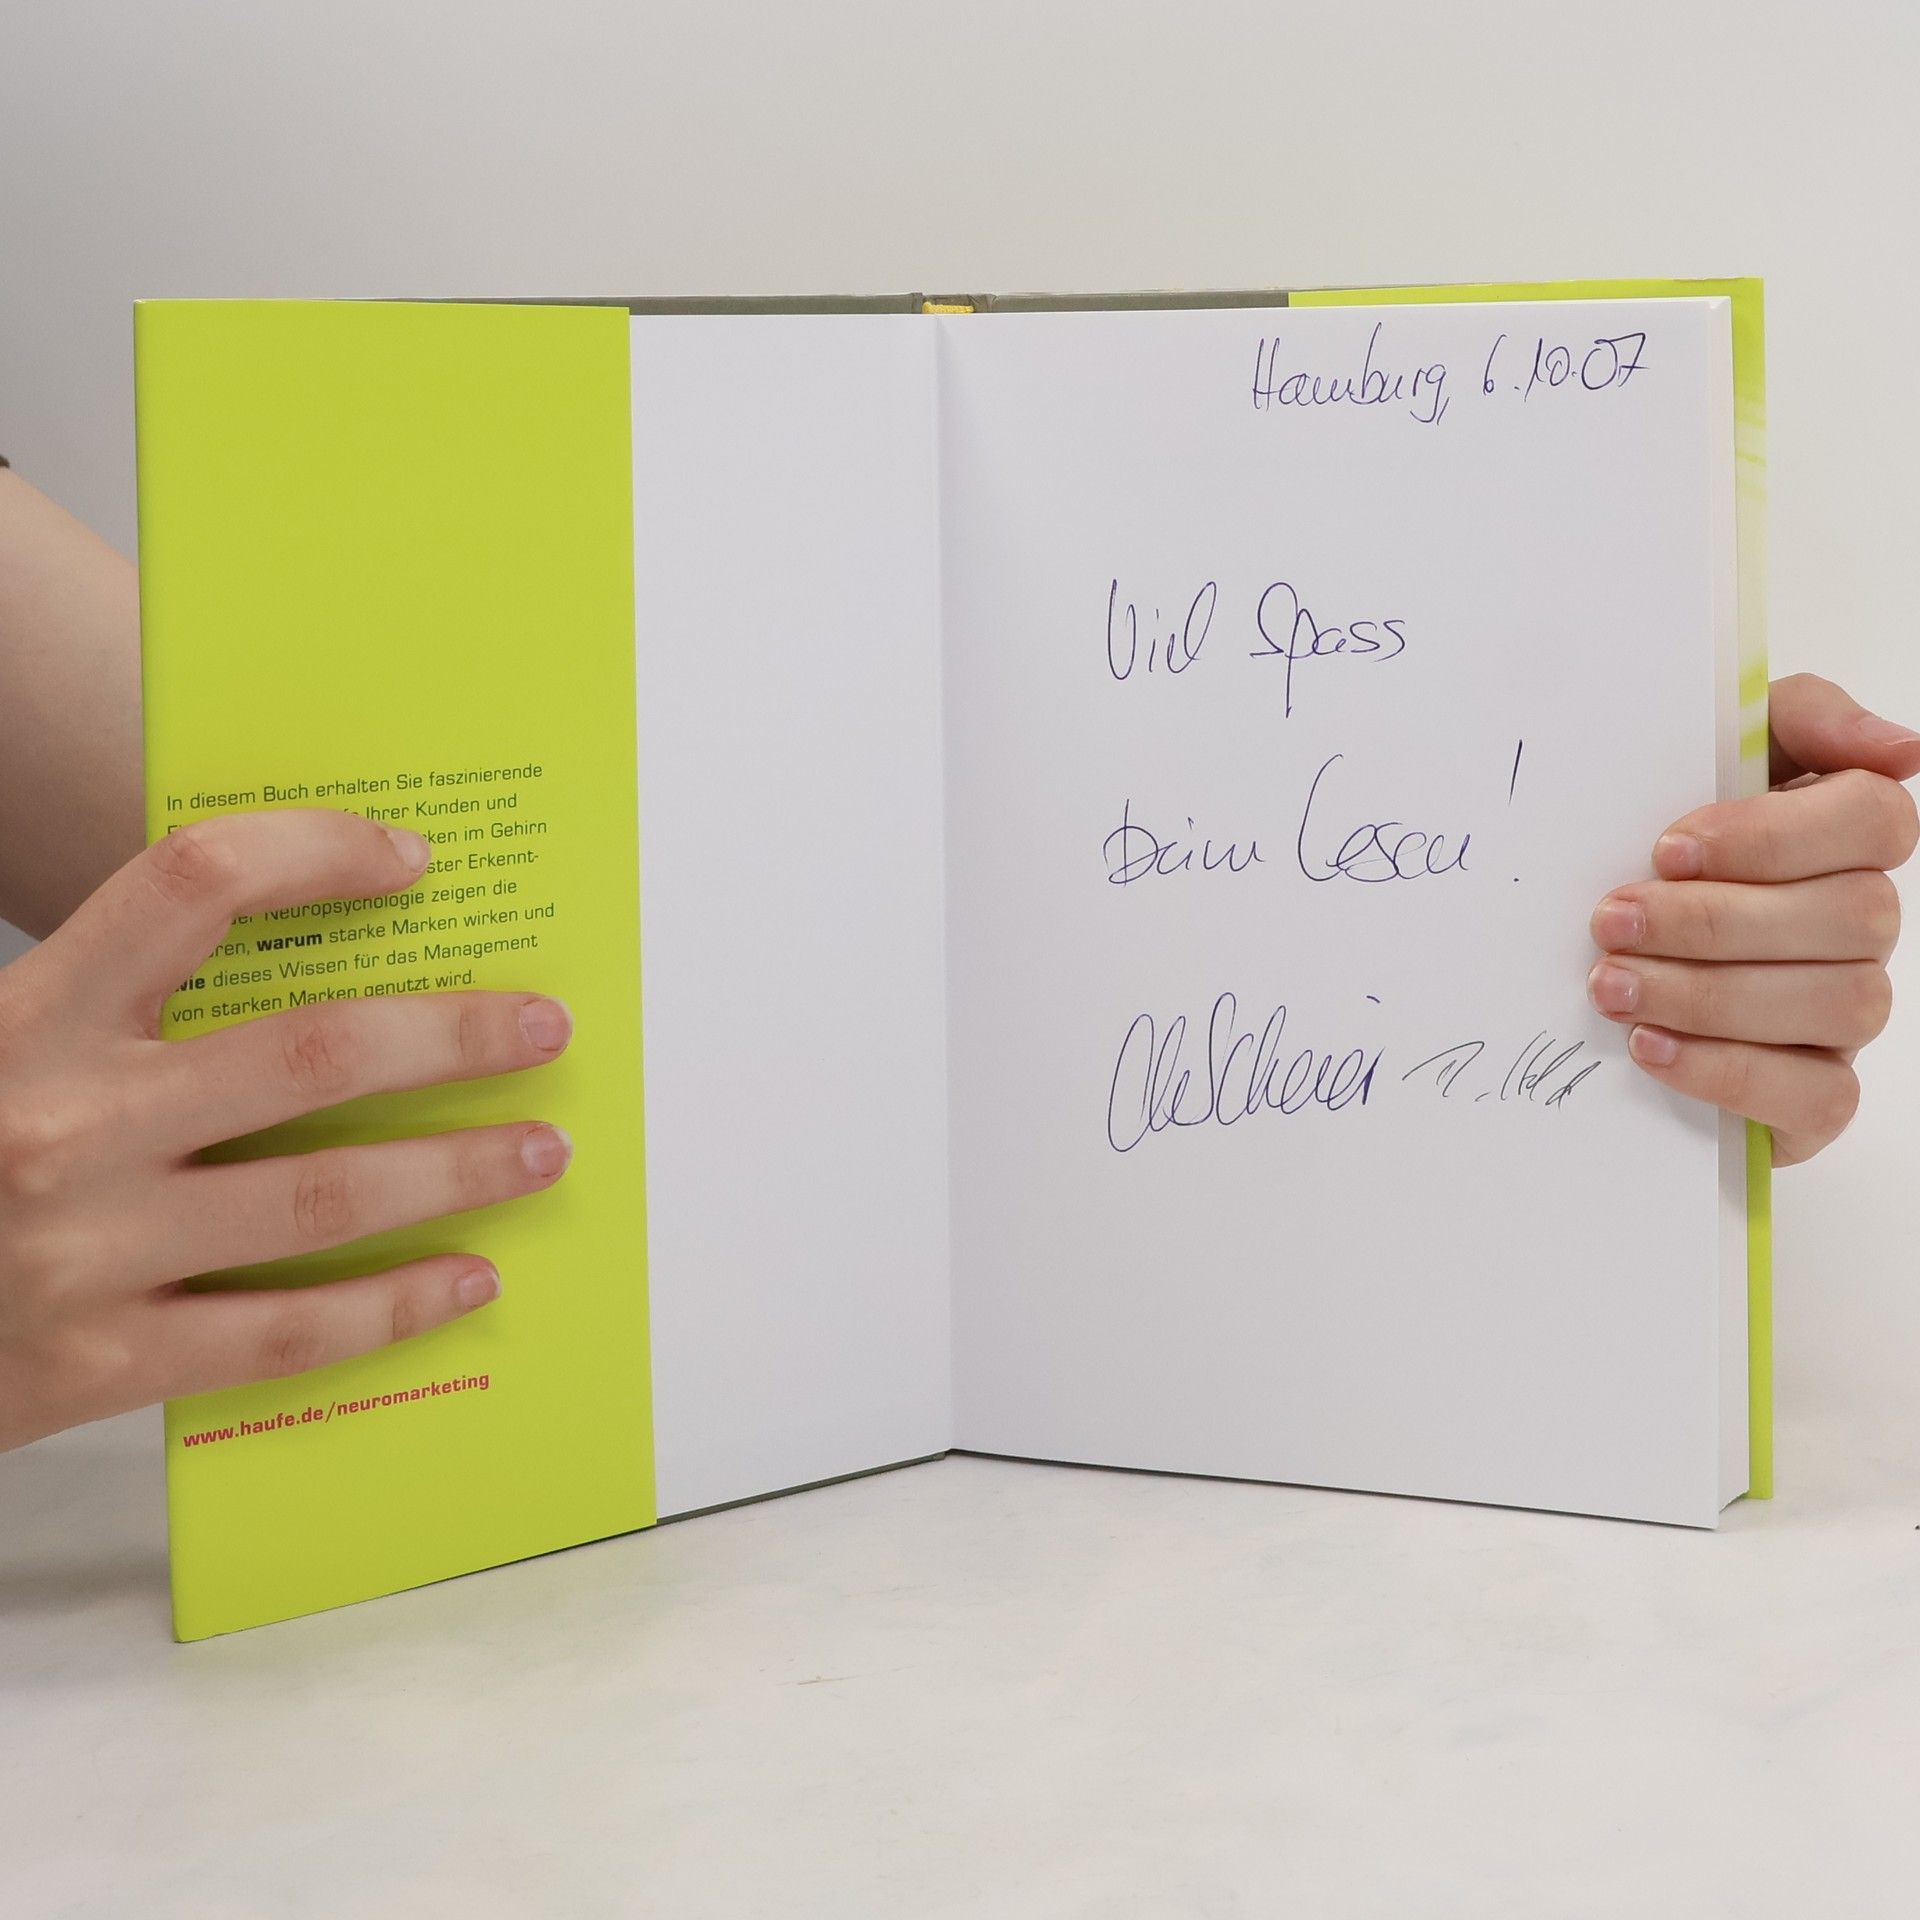 In diesem Buch erhalten Sie faszinierende
Ihrer Kunden und
ken im Gehirn
ster Erkennt-
der Neuropsychologie zeigen die
ren, warum starke Marken wirken und
wie dieses Wissen für das Management
von starken Marken genutzt wird.
www.haufe.de/neuromarketing
Hamburg, 6.10.07
Viel Spass
beim Lesen!